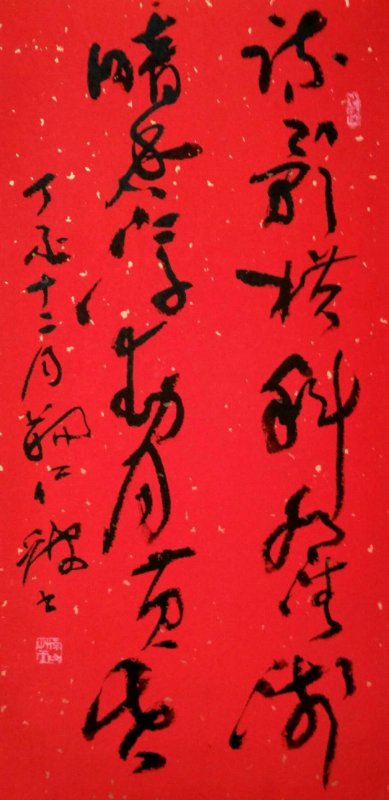 疏影横斜水清浅
暗香浮動月黄昏
丁亥十二月 仁 书